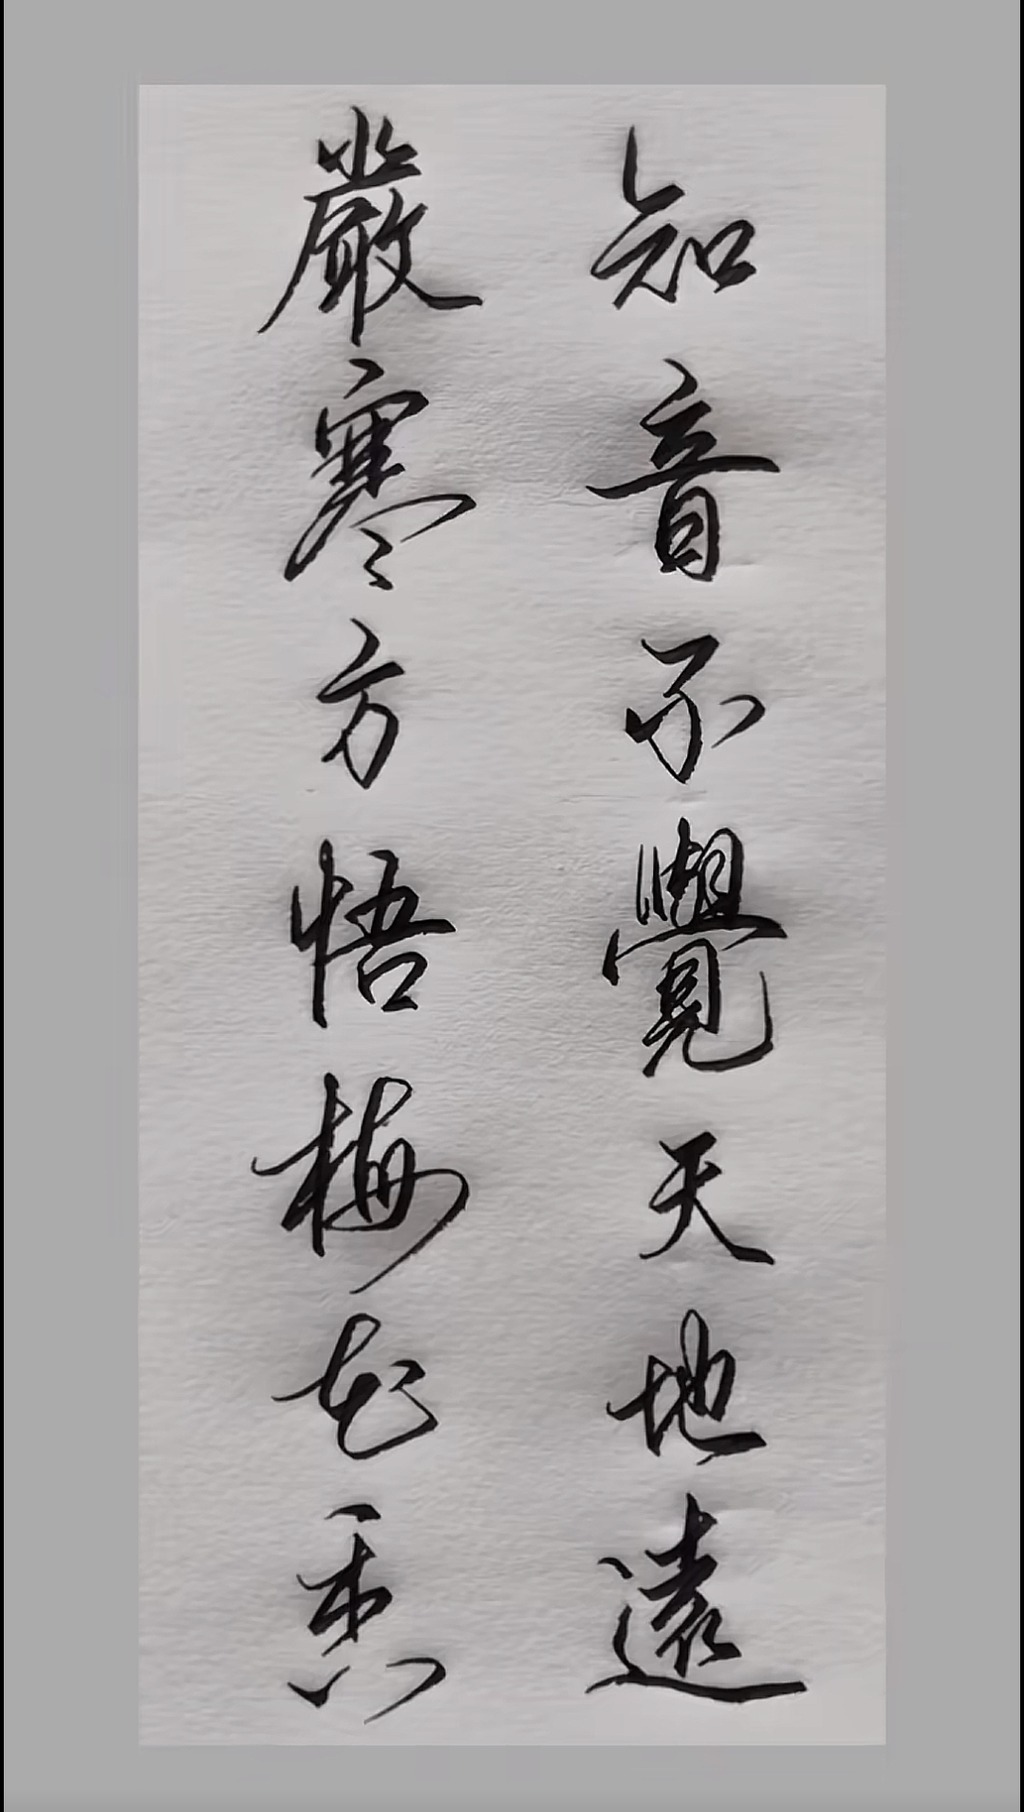 知音不覺天地遠
嚴寒方悟梅花香